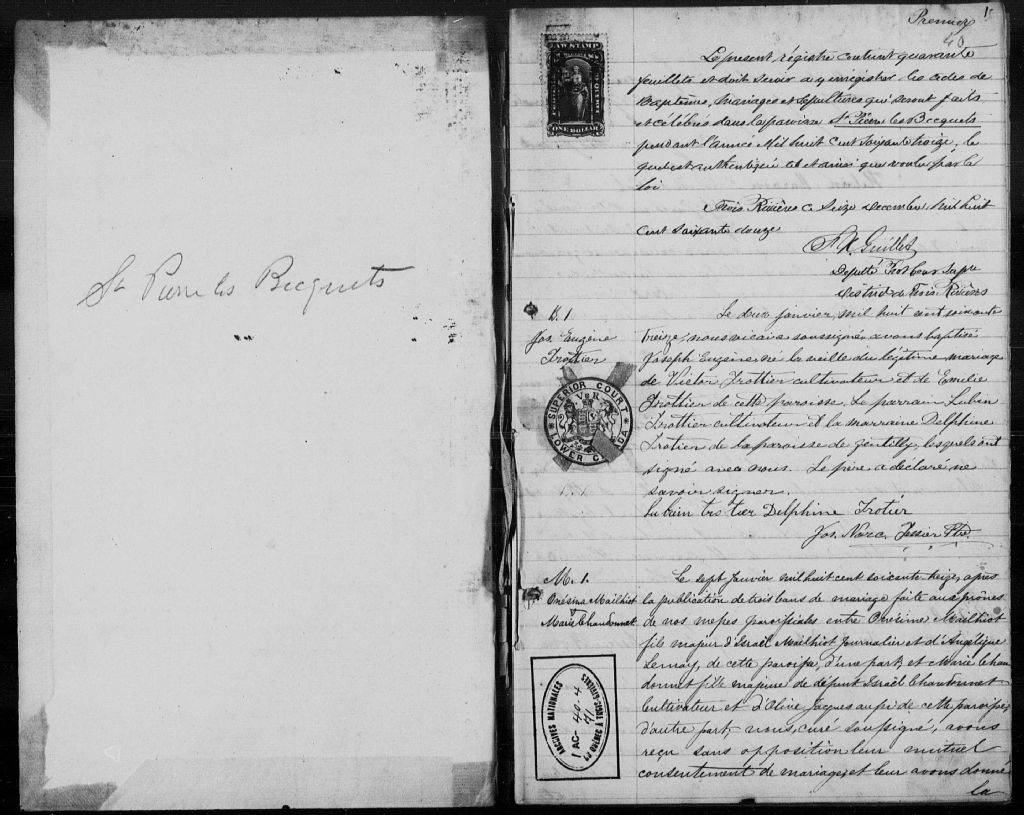 St Pierre les Becquets
Premier
40
1
LAW STAMP
ONE DOLLAR
Le present régistre contient quarante
feuillets et doit servir a y enregistrer les actes de
Baptêmes, Mariages et Sepultures qui seront faits
et célébrés dans la paroisse St Pierre les Becquets
pendant l'année Mil huit Cent Soixante treize, le
quel est authentiqué et ainsi que voulu par la
loi
Trois Rivières ce Seize Decembre Mil huit
cent soixante douze
Guillet
Deputé Prot Cour Supre
District de Trois Rivières
B. 1
Jos. Eugène
Trottier
Le deux janvier, mil huit cent soixante
treize, nous vicaire soussigné, avons baptisé
Joseph Eugène, né la veille du légitime mariage
de Victor Trottier cultivateur et de Emelie
Trottier de cette paroisse. Le parrain Luben
Trottier cultivateur et la marraine Delphine
Trotier de la paroisse de Gentilly, lesquels ont
signé avec nous. Le père a déclaré ne
savoir signer.
Lubin trotier Delphine Trotier
Jos. Narc. Tessier Ptre
SUPERIOR COURT
V R
LOWER CANADA
M. 1.
Onésime Mailhiot
&
Marie Chandonnet
Le sept Janvier mil huit cent soixante treize, après
la publication de trois bans de mariage faite aux prônes
de nos messes paroissiales entre Onésime Mailhiot
fils majeur d'Israël Mailhiot Journalier et d'Angélique
Lemay, de cette paroisse, d'une part, et Marie Chan
donnet fille majeure de défunt Israël Chandonnet
Cultivateur et d'Olive Jacques aussi de cette paroisse
d'autre part, nous, curé soussigné, avons
reçu sans opposition leur mutuel
consentement de mariage, et leur avons donné
la
ARCHIVES NATIONALES
AC- 40-4
71
DU QUÉBEC À TROIS-RIVIÈRES